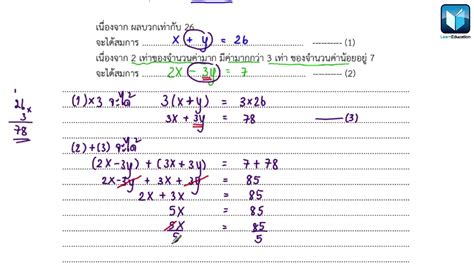 Learn Education
เนื่องจาก ผลบวกเท่ากับ 26
จะได้สมการ x + y = 26 ---------- (1)
เนื่องจาก 2 เท่าของจำนวนค่ามาก มีค่ามากกว่า 3 เท่า ของจำนวนค่าน้อยอยู่ 7
จะได้สมการ 2x - 3y = 7 ---------- (2)
(1) × 3 จะได้ 3(x + y) = 3×26
3x + 3y = 78 —— (3)
1
26 ×
3
78
(2) + (3) จะได้
(2x - 3y) + (3x + 3y) = 7 + 78
2x - 3y + 3x + 3y = 85
2x + 3x = 85
5x = 85
5x = 85
5 5